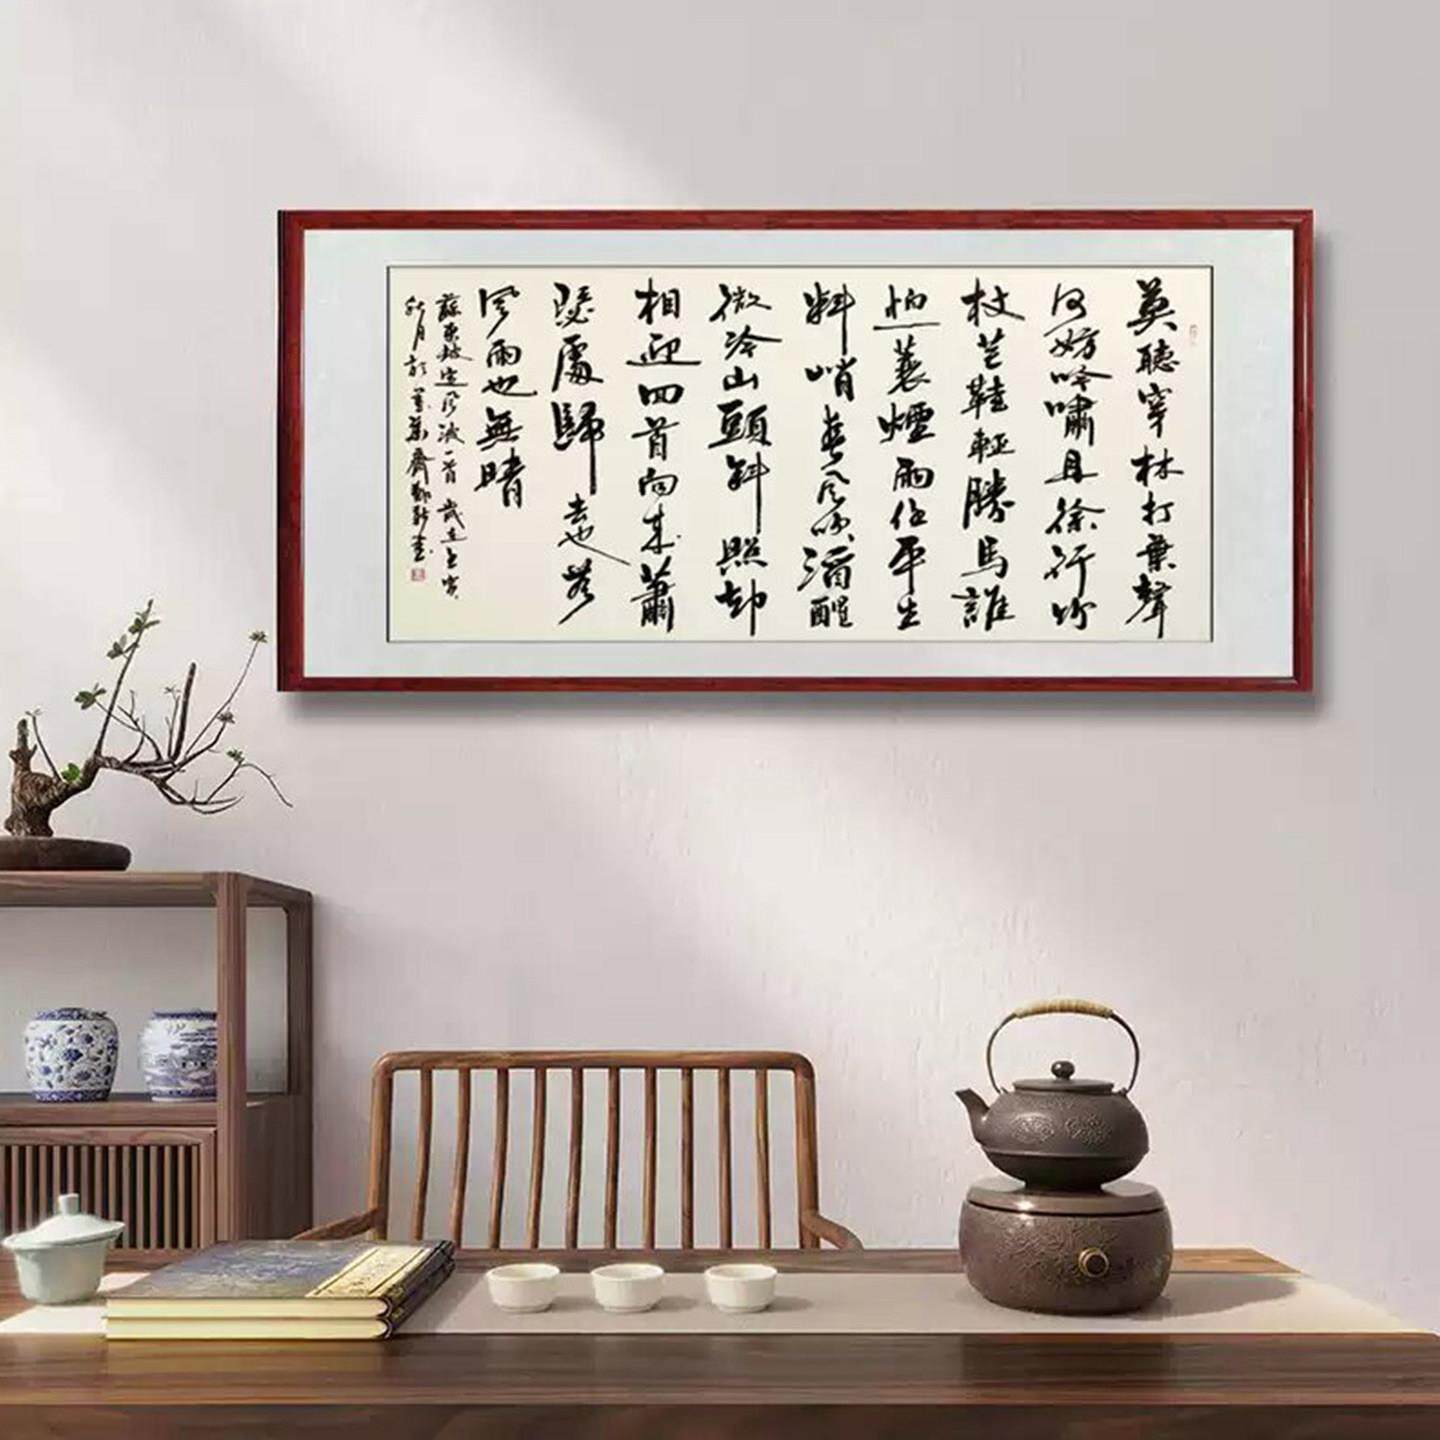 莫聽穿林打葉聲
何妨吟嘯且徐行竹
杖芒鞋輕勝馬誰
怕一蓑煙雨任平生
料峭春風吹酒醒
微冷山頭斜照却
相迎回首向來蕭
瑟處歸去也無
風雨也無晴
蘇東坡定風波一首歲在壬寅
秋月於